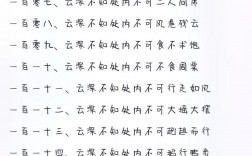 一百零七、云深不知处内不可二人同席
一百零八、云深不知处内不可风卷残云
一百零九、云深不知处内不可食不求饱
一百一十、云深不知处内不可不食圆果
一百一十一、云深不知处内不可行走如风
一百一十二、云深不知处内不可大摇大摆
一百一十三、云深不知处内不可跑越而行
一百一十四、云深不知处内不可踮行鸭步